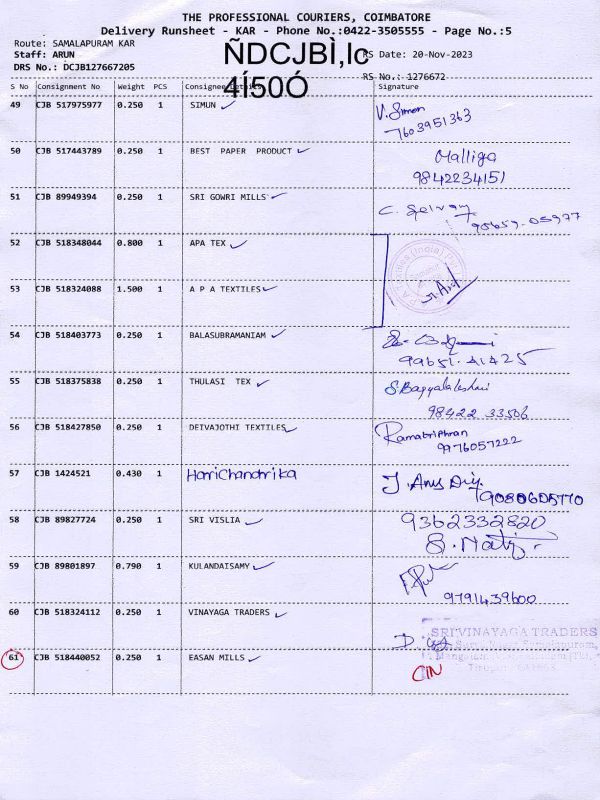 THE PROFESSIONAL COURIERS, COIMBATORE
Delivery Runsheet - KAR - Phone No.:0422-3505555 - Page No.:5
Route: SAMALAPURAM KAR
Staff: ARUN
ÑDCJBÌ,Ic
RS Date: 20-Nov-2023
DRS No.: DCJB127667205
4Í50Ó
RS No.: 1276672
S No Consignment No Weight PCS Consignee Signature
49 CJB 517975977 0.250 1 SIMUN V. Simon
7603951363
50 CJB 517443789 0.250 1 BEST PAPER PRODUCT Malliga
9842234151
51 CJB 89949394 0.250 1 SRI GOWRI MILLS C. Selvam
98659-05977
52 CJB 518348044 0.800 1 APA TEX
53 CJB 518324088 1.500 1 A P A TEXTILES
54 CJB 518403773 0.250 1 BALASUBRAMANIAM
99651-41425
55 CJB 518375838 0.250 1 THULASI TEX S. Bagyalakshmi
98422 33506
56 CJB 518427850 0.250 1 DEIVAJOTHI TEXTILES
9976057222
57 CJB 1424521 0.430 1 HariChandrika J. Anus Diy.
9080605770
58 CJB 89827724 0.250 1 SRI VISLIA 9362332820
59 CJB 89801897 0.790 1 KULANDAISAMY
9791439600
60 CJB 518324112 0.250 1 VINAYAGA TRADERS
SRI VINAYAGA TRADERS
61 CJB 518440052 0.250 1 EASAN MILLS
CIN